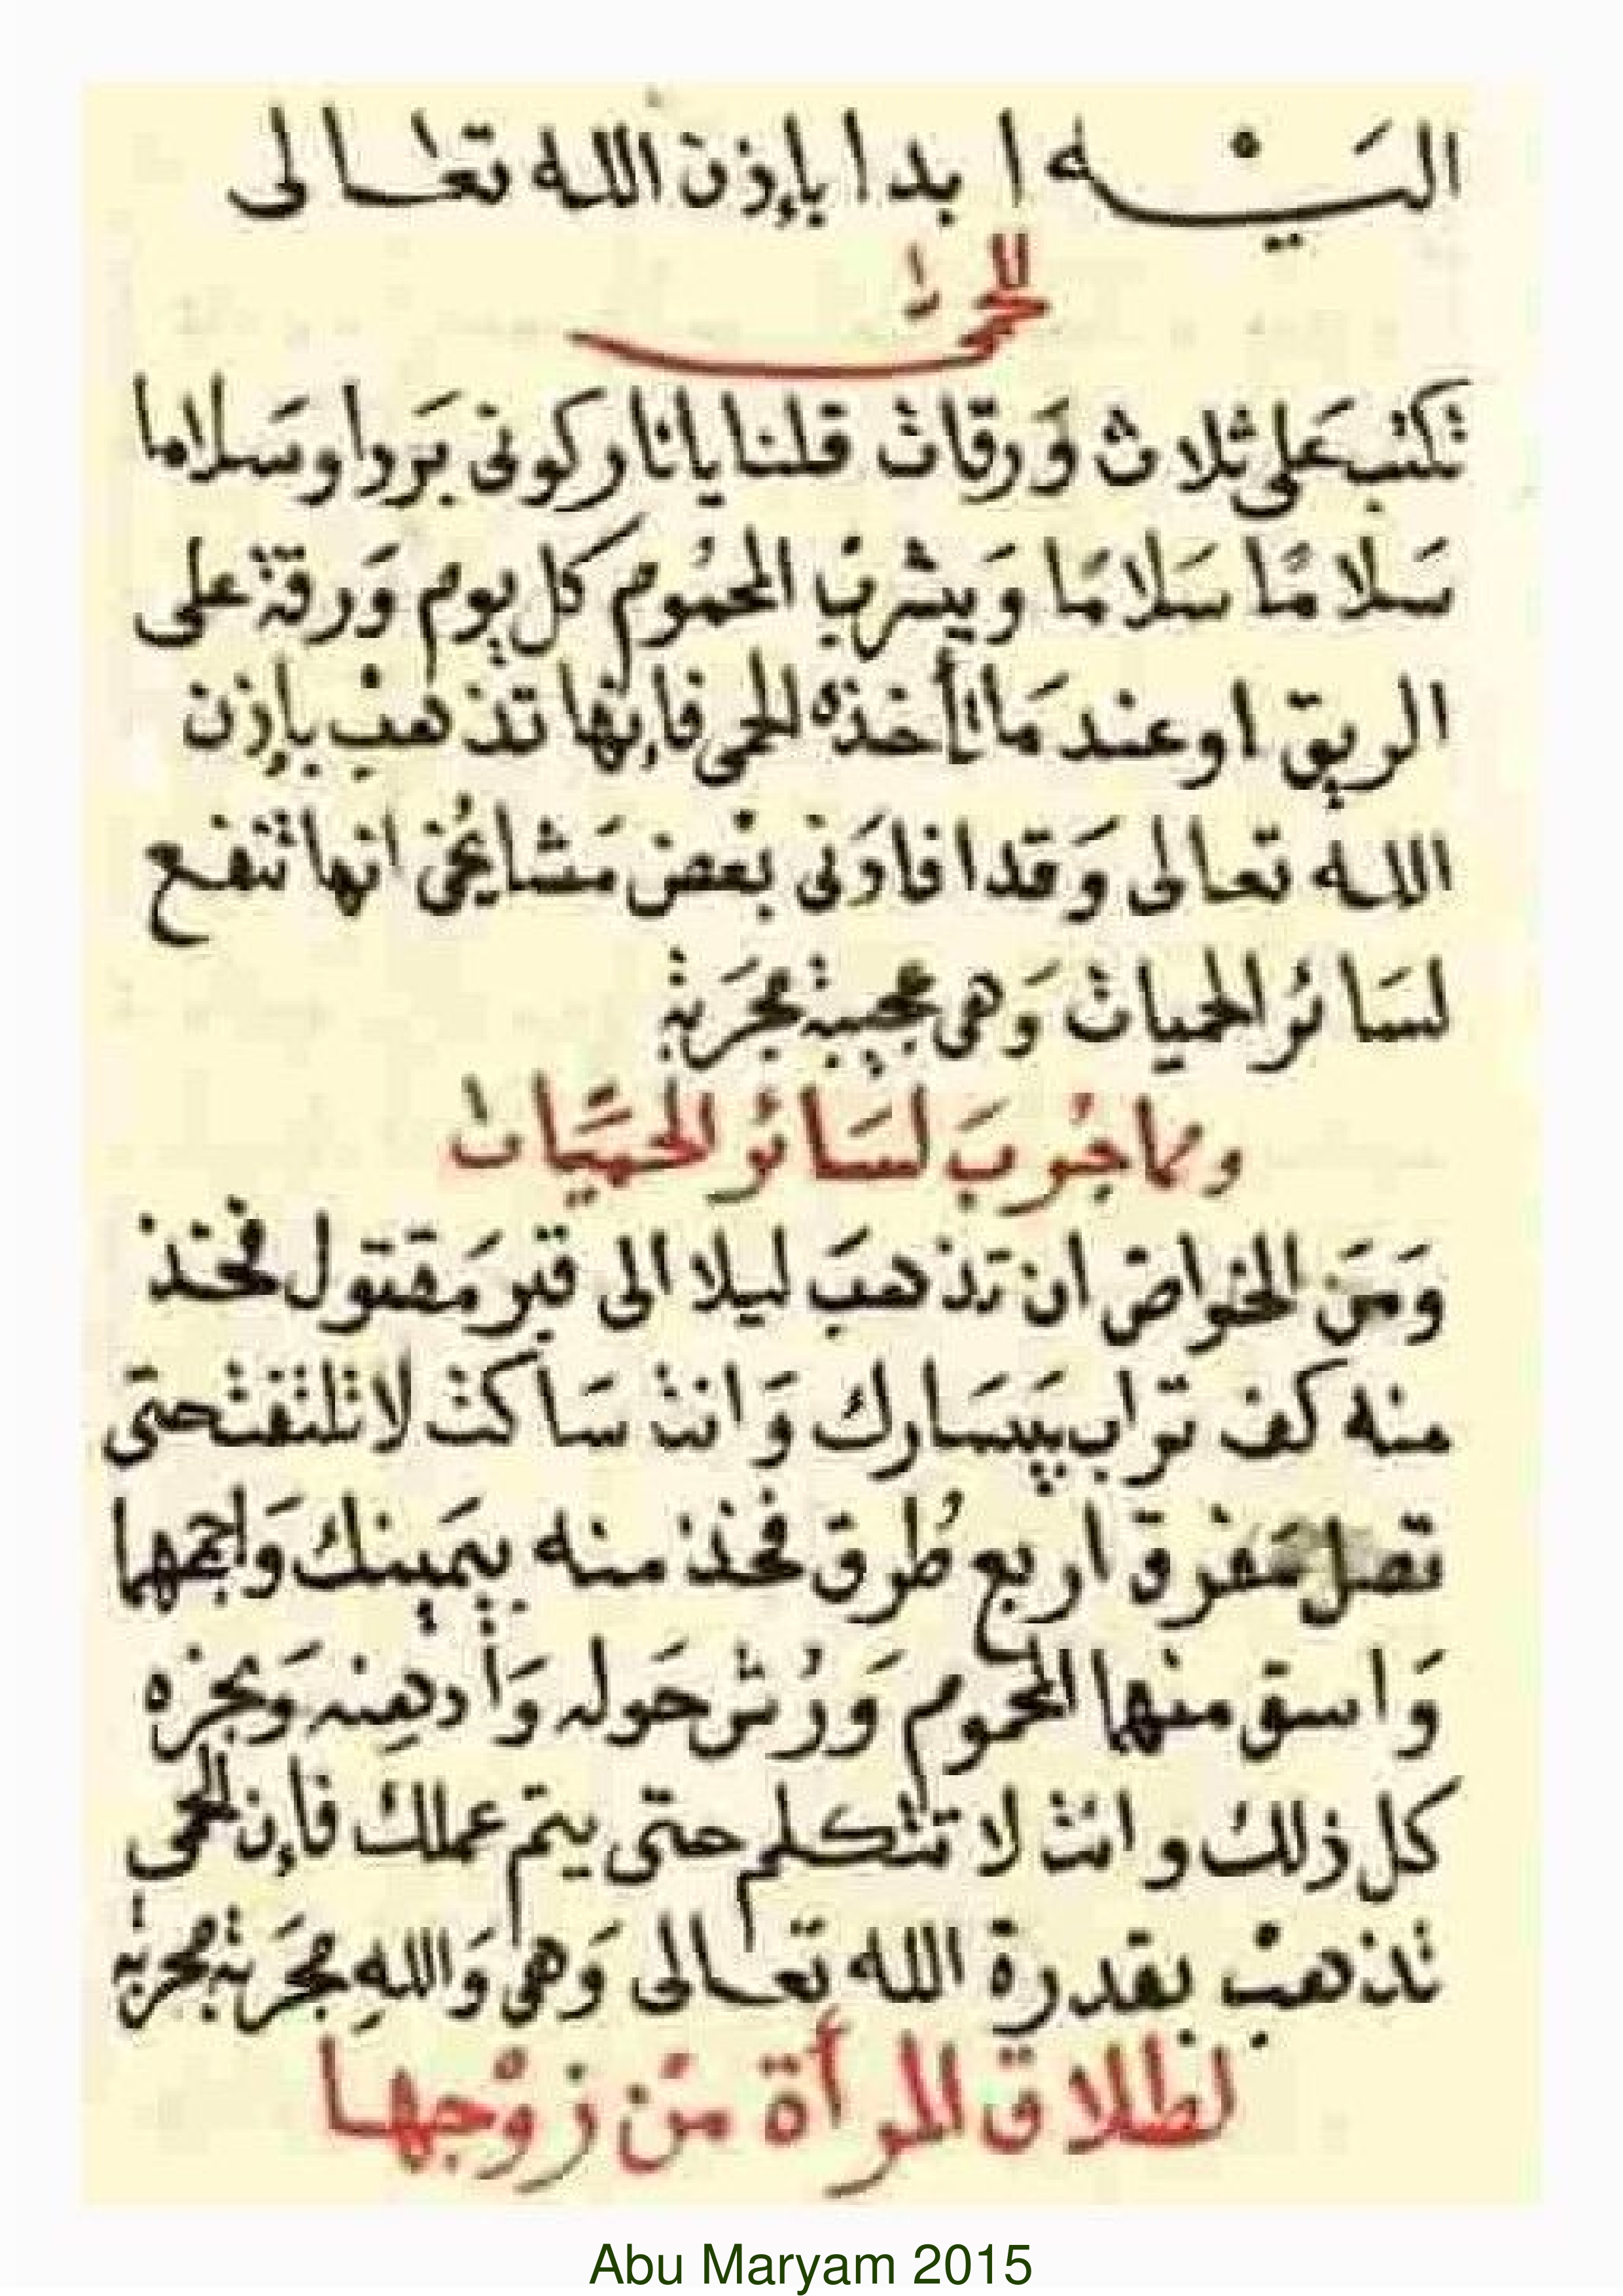 اليَـــــه ابدا بإذن الله تعالى
للحمَّى
تكتب على ثلاث وَرقات قلنا يا نار كونى بَردا وسَلاما
سَلامًا سَلامًا وَيشرب المحمُوم كل يوم وَرقة على
الريق او عند مَا تأخذه للحمى فإنها تذهب بإذن
الله تعالى وَقد افاوَنى بعض مَشايخُى انها تنفع
لسَائر الحميات وَهى عجيبة مجرَبة
ومماجُربَ لسَائر الحمَّيات
وَمَن الخواص ان تذهبَ ليلا الى قبر مَقتول فخذ
منه كف تراب بيَسَارك وَانت سَاكت لا تلتفت حتى
تصل مَفرق اربع طُرق فخذ منه بيَمينك وَاجمعها
وَاسق منها المحموم وَرُش حَوله وَأدهِنه وَبخره
كل ذلك وانت لا تتكلم حتى يتم عملك فإن الحمى
تذهب بقدرة الله تعالى وَهى وَاللهِ مجرَبة مجربة
لطلاق المرأة مَن زوْجها
Abu Maryam 2015